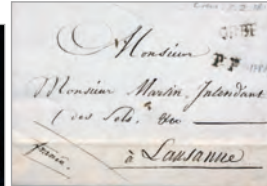 Monsieur
P.P.
Monsieur Martin, Intendant
des Sels, &ca
franco.
à Lausanne